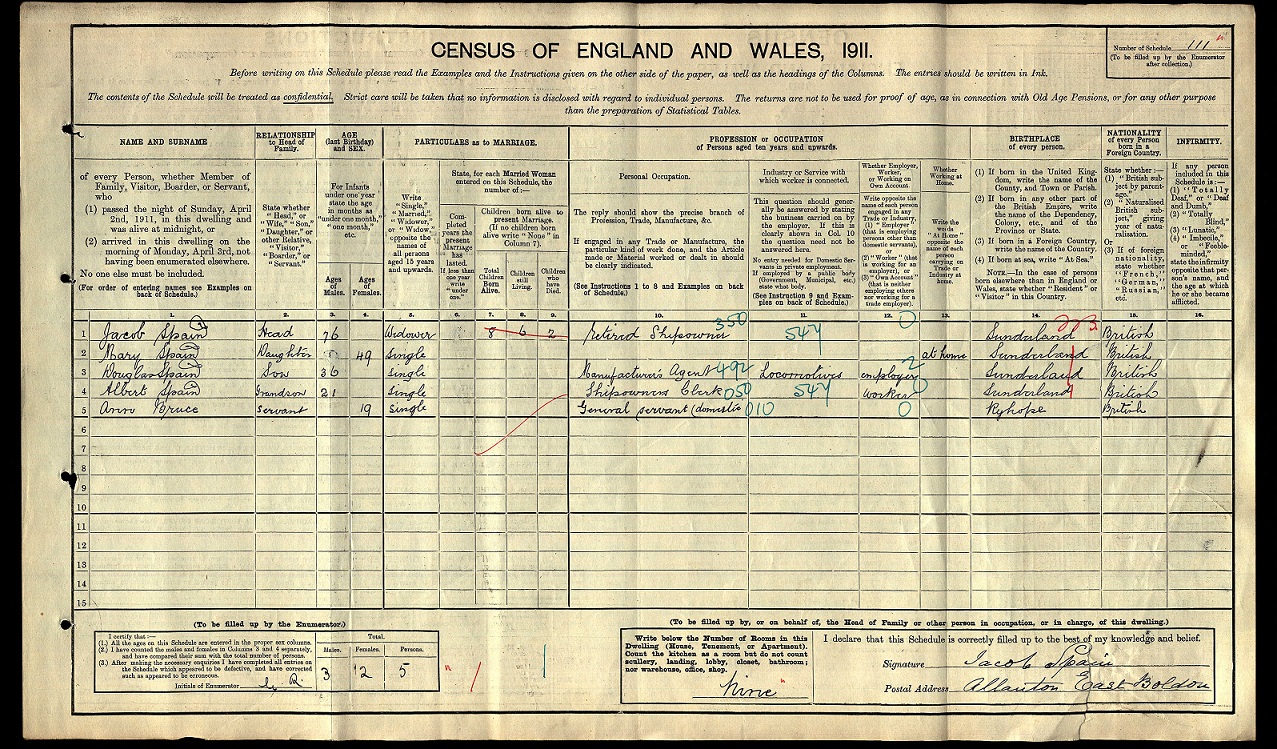 CENSUS OF ENGLAND AND WALES, 1911.
Number of Schedule 111
(To be filled up by the Enumerator
after collection.)
Before writing on this Schedule please read the Examples and the Instructions given on the other side of the paper, as well as the headings of the Columns. The entries should be written in Ink.
The contents of the Schedule will be treated as confidential. Strict care will be taken that no information is disclosed with regard to individual persons. The returns are not to be used for proof of age, as in connection with Old Age Pensions, or for any other purpose
than the preparation of Statistical Tables.
NAME AND SURNAME
of every Person, whether Member of
Family, Visitor, Boarder, or Servant,
who
(1) passed the night of Sunday, April
2nd, 1911, in this dwelling and
was alive at midnight, or
(2) arrived in this dwelling on the
morning of Monday, April 3rd, not
having been enumerated elsewhere.
No one else must be included.
(For order of entering names see Examples on
back of Schedule.)
RELATIONSHIP
to Head of
Family.
State whether
"Head," or
"Wife," "Son,"
"Daughter," or
other Relative,
"Visitor,"
"Boarder," or
"Servant."
AGE
(last Birthday)
and SEX.
For Infants
under one year
state the age
in months as
"under one month,"
"one month,"
etc.
Ages
of
Males.
Ages
of
Females.
PARTICULARS as to MARRIAGE.
Write
"Single,"
"Married,"
"Widower,"
or "Widow,"
opposite the
names of
all persons
aged 15 years
and upwards.
State, for each Married Woman
entered on this Schedule, the
number of:—
Completed
years the
present
Marriage
has
lasted.
If less than
one year
write
"under
one."
Children born alive to
present Marriage.
(If no children born
alive write "None" in
Column 7).
Total
Children
Born
Alive.
Children
still
Living.
Children
who
have
Died.
PROFESSION or OCCUPATION
of Persons aged ten years and upwards.
Personal Occupation.
The reply should show the precise branch of
Profession, Trade, Manufacture, &c.
If engaged in any Trade or Manufacture, the
particular kind of work done, and the Article
made or Material worked or dealt in should
be clearly indicated.
(See Instructions 1 to 8 and Examples on back
of Schedule.)
Industry or Service with
which worker is connected.
This question should gener-
ally be answered by stating
the business carried on by
the employer. If this is
clearly shown in Col. 10
the question need not be
answered here.
No entry needed for Domestic Ser-
vants in private employment.
If employed by a public body
(Government, Municipal, etc.)
state what body.
(See Instruction 9 and Exam-
ples on back of Schedule.)
Whether Employer,
Worker,
or Working on
Own Account.
Write opposite the
name of each person
engaged in any
Trade or Industry,
(1) "Employer"
(that is employing
persons other than
domestic servants),
or
(2) "Worker" (that
is working for an
employer), or
(3) "Own Account"
(that is neither
employing others
nor working for a
trade employer).
Whether
Working at
Home.
Write the
words
"At Home"
opposite the
name of each
person
carrying on
Trade or
Industry at
home.
BIRTHPLACE
of every person.
(1) If born in the United King-
dom, write the name of the
County, and Town or Parish.
(2) If born in any other part of
the British Empire, write
the name of the Dependency,
Colony, etc., and of the
Province or State.
(3) If born in a Foreign Country,
write the name of the Country.
(4) If born at sea, write "At Sea."
NOTE.—In the case of persons
born elsewhere than in England or
Wales, state whether "Resident" or
"Visitor" in this Country.
NATIONALITY
of every Person
born in a
Foreign Country.
State whether:—
(1) "British
subject by
parentage."
(2) "Naturalised
British
subject,"
giving
year of
naturalisation.
Or
(3) If of foreign
nationality,
state whether
"French,"
"German,"
"Russian,"
etc.
INFIRMITY.
If any person
included in this
Schedule is:—
(1) "Totally
Deaf," or "Deaf
and Dumb,"
(2) "Totally
Blind,"
(3) "Lunatic,"
(4) "Imbecile,"
or "Feeble-
minded,"
state the infirmity
opposite that per-
son's name, and
the age at which
he or she became
afflicted.
1. 2. 3. 4. 5. 6. 7. 8. 9. 10. 11. 12. 13. 14. 15. 16.
1 Jacob Spain Head 76 Widower 8 6 2 Retired Shipowner 350 547 0 Sunderland British
2 Mary Spain Daughter 49 Single at home Sunderland British
3 Douglas Spain Son 36 Single Manufacturers Agent 492 Locomotives employer 2 Sunderland British
4 Albert Spain Grandson 21 Single Shipowners Clerk 050 547 worker Sunderland British
5 Ann Bruce Servant 19 Single General servant (domestic 010 0 Ryhope British
6
7
8
9
10
11
12
13
14
15
(To be filled up by the Enumerator.)
I certify that:—
(1.) All the ages on this Schedule are entered in the proper sex columns.
(2.) I have counted the males and females in Columns 3 and 4 separately,
and have compared their sum with the total number of persons.
(3.) After making the necessary enquiries I have completed all entries on
the Schedule which appeared to be defective, and have corrected
such as appeared to be erroneous.
Initials of Enumerator
Total.
Males. Females. Persons.
3 2 5
(To be filled up by, or on behalf of, the Head of Family or other person in occupation, or in charge, of this dwelling.)
Write below the Number of Rooms in this
Dwelling (House, Tenement, or Apartment).
Count the kitchen as a room but do not count
scullery, landing, lobby, closet, bathroom;
nor warehouse, office, shop.
Nine
I declare that this Schedule is correctly filled up to the best of my knowledge and belief.
Signature Jacob Spain
Postal Address Allanton East Boldon